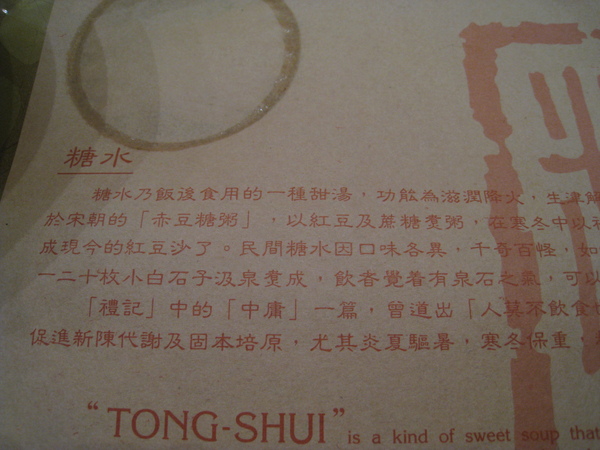 糖水
糖水乃飯後食用的一種甜湯，功能為滋潤降火，生津解
於宋朝的「赤豆糖粥」，以紅豆及蔗糖煑粥，在寒冬中以
成現今的紅豆沙了。民間糖水因口味各異，千奇百怪，如
一二十枚小白石子汲泉煑成，飲者覺着有泉石之氣，可以
「禮記」中的「中庸」一篇，曾道出「人莫不飲食
促進新陳代謝及固本培原，尤其炎夏驅暑，寒冬保重，
“TONG-SHUI” is a kind of sweet soup that